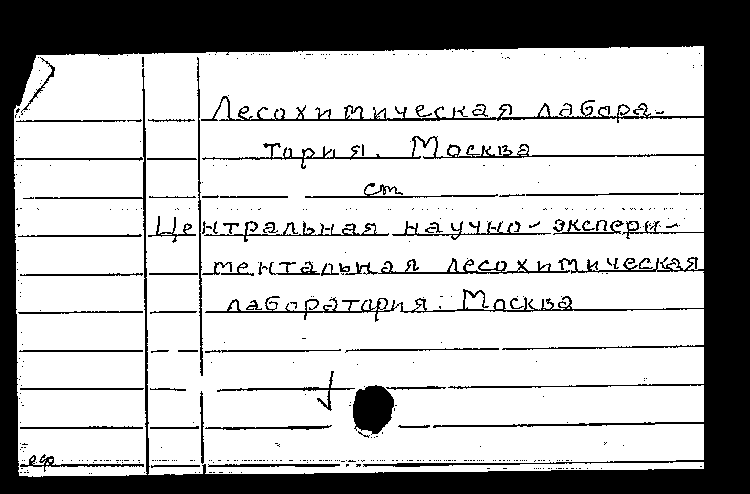 Лесохимическая лабора-
тория. Москва
см
Центральная научно-экспери-
ментальная лесохимическая
лаборатория. Москва